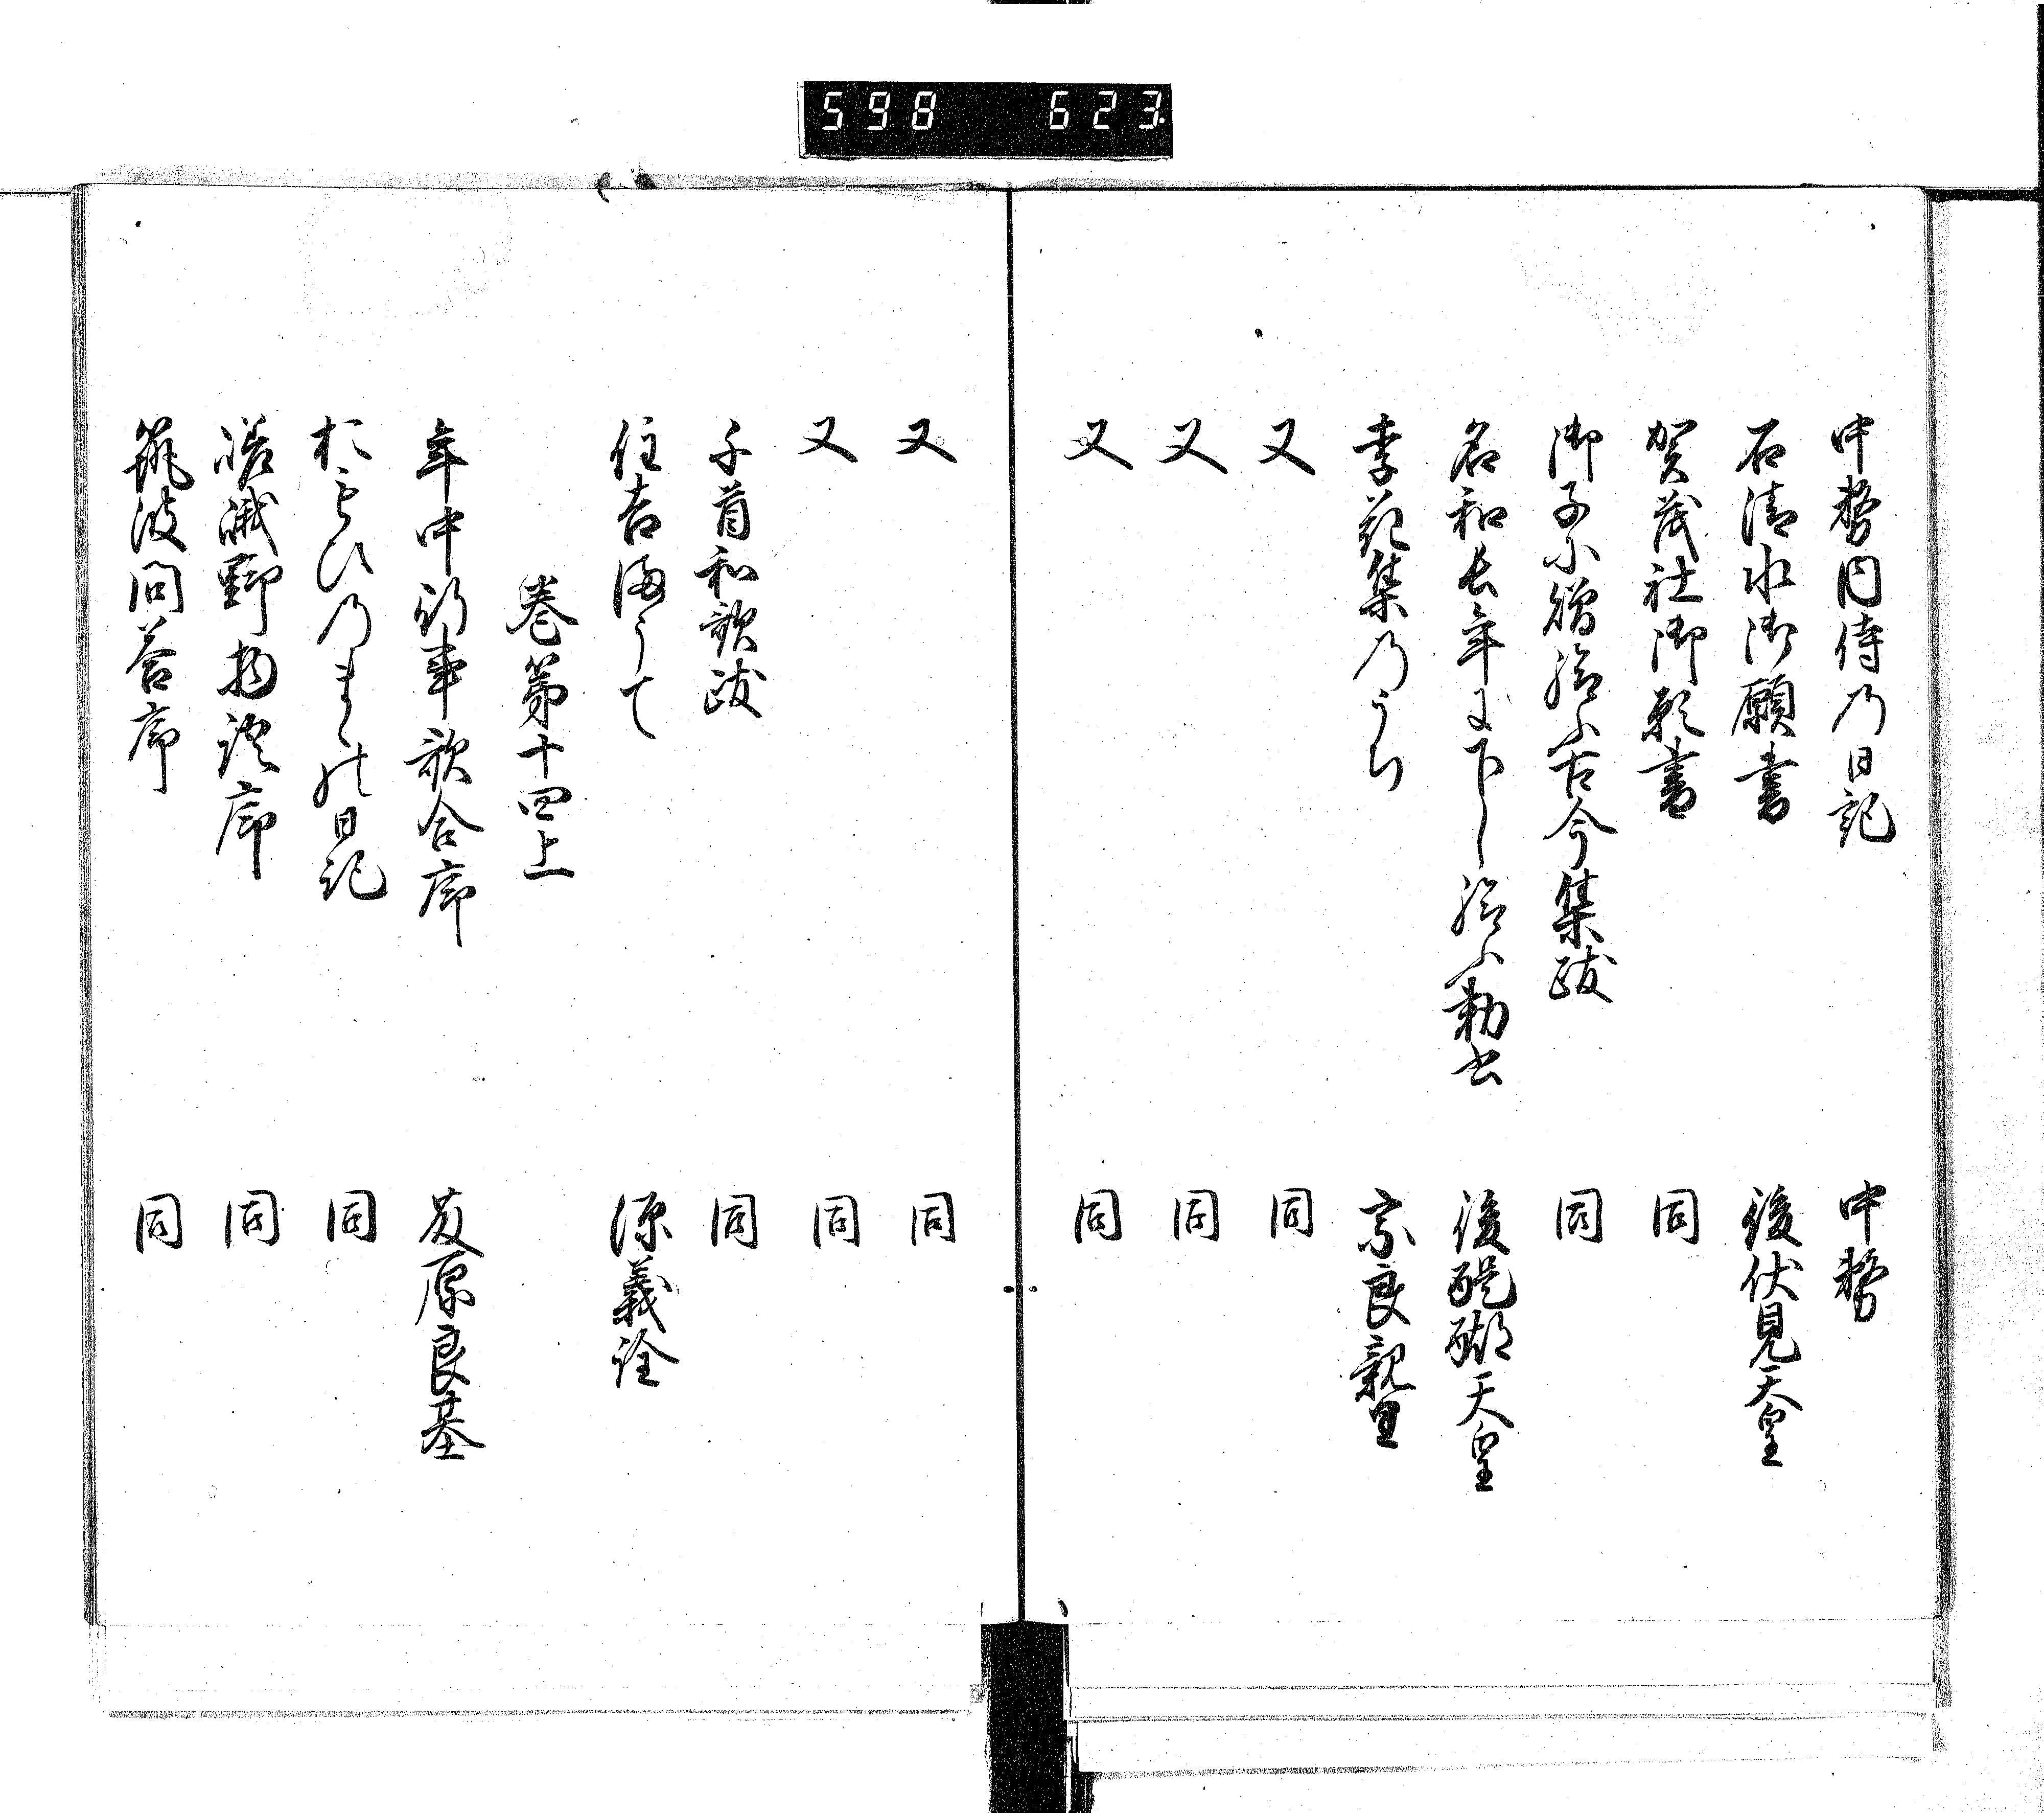 598 623
中務内侍の日記 中務
石清水御願書 後伏見天皇
賀茂社御願書 同
御子に贈給ふ古今集跋 同
名和長年に下し給ふ勅書 後醍醐天皇
李花集のうち 宗良親王
又 同
又 同
又 同
又 同
又 同
千首和歌跋 同
住吉まうて 源義詮
巻第十四上
年中行事歌合序 藤原良基
おもひのまゝの日記 同
嵯峨野物語序 同
筑波問答序 同